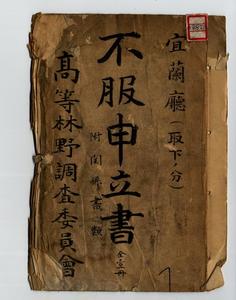 宜蘭廳(取下ノ分)
不服申立書
附関係書類
全壹冊
高等林野調査委員會